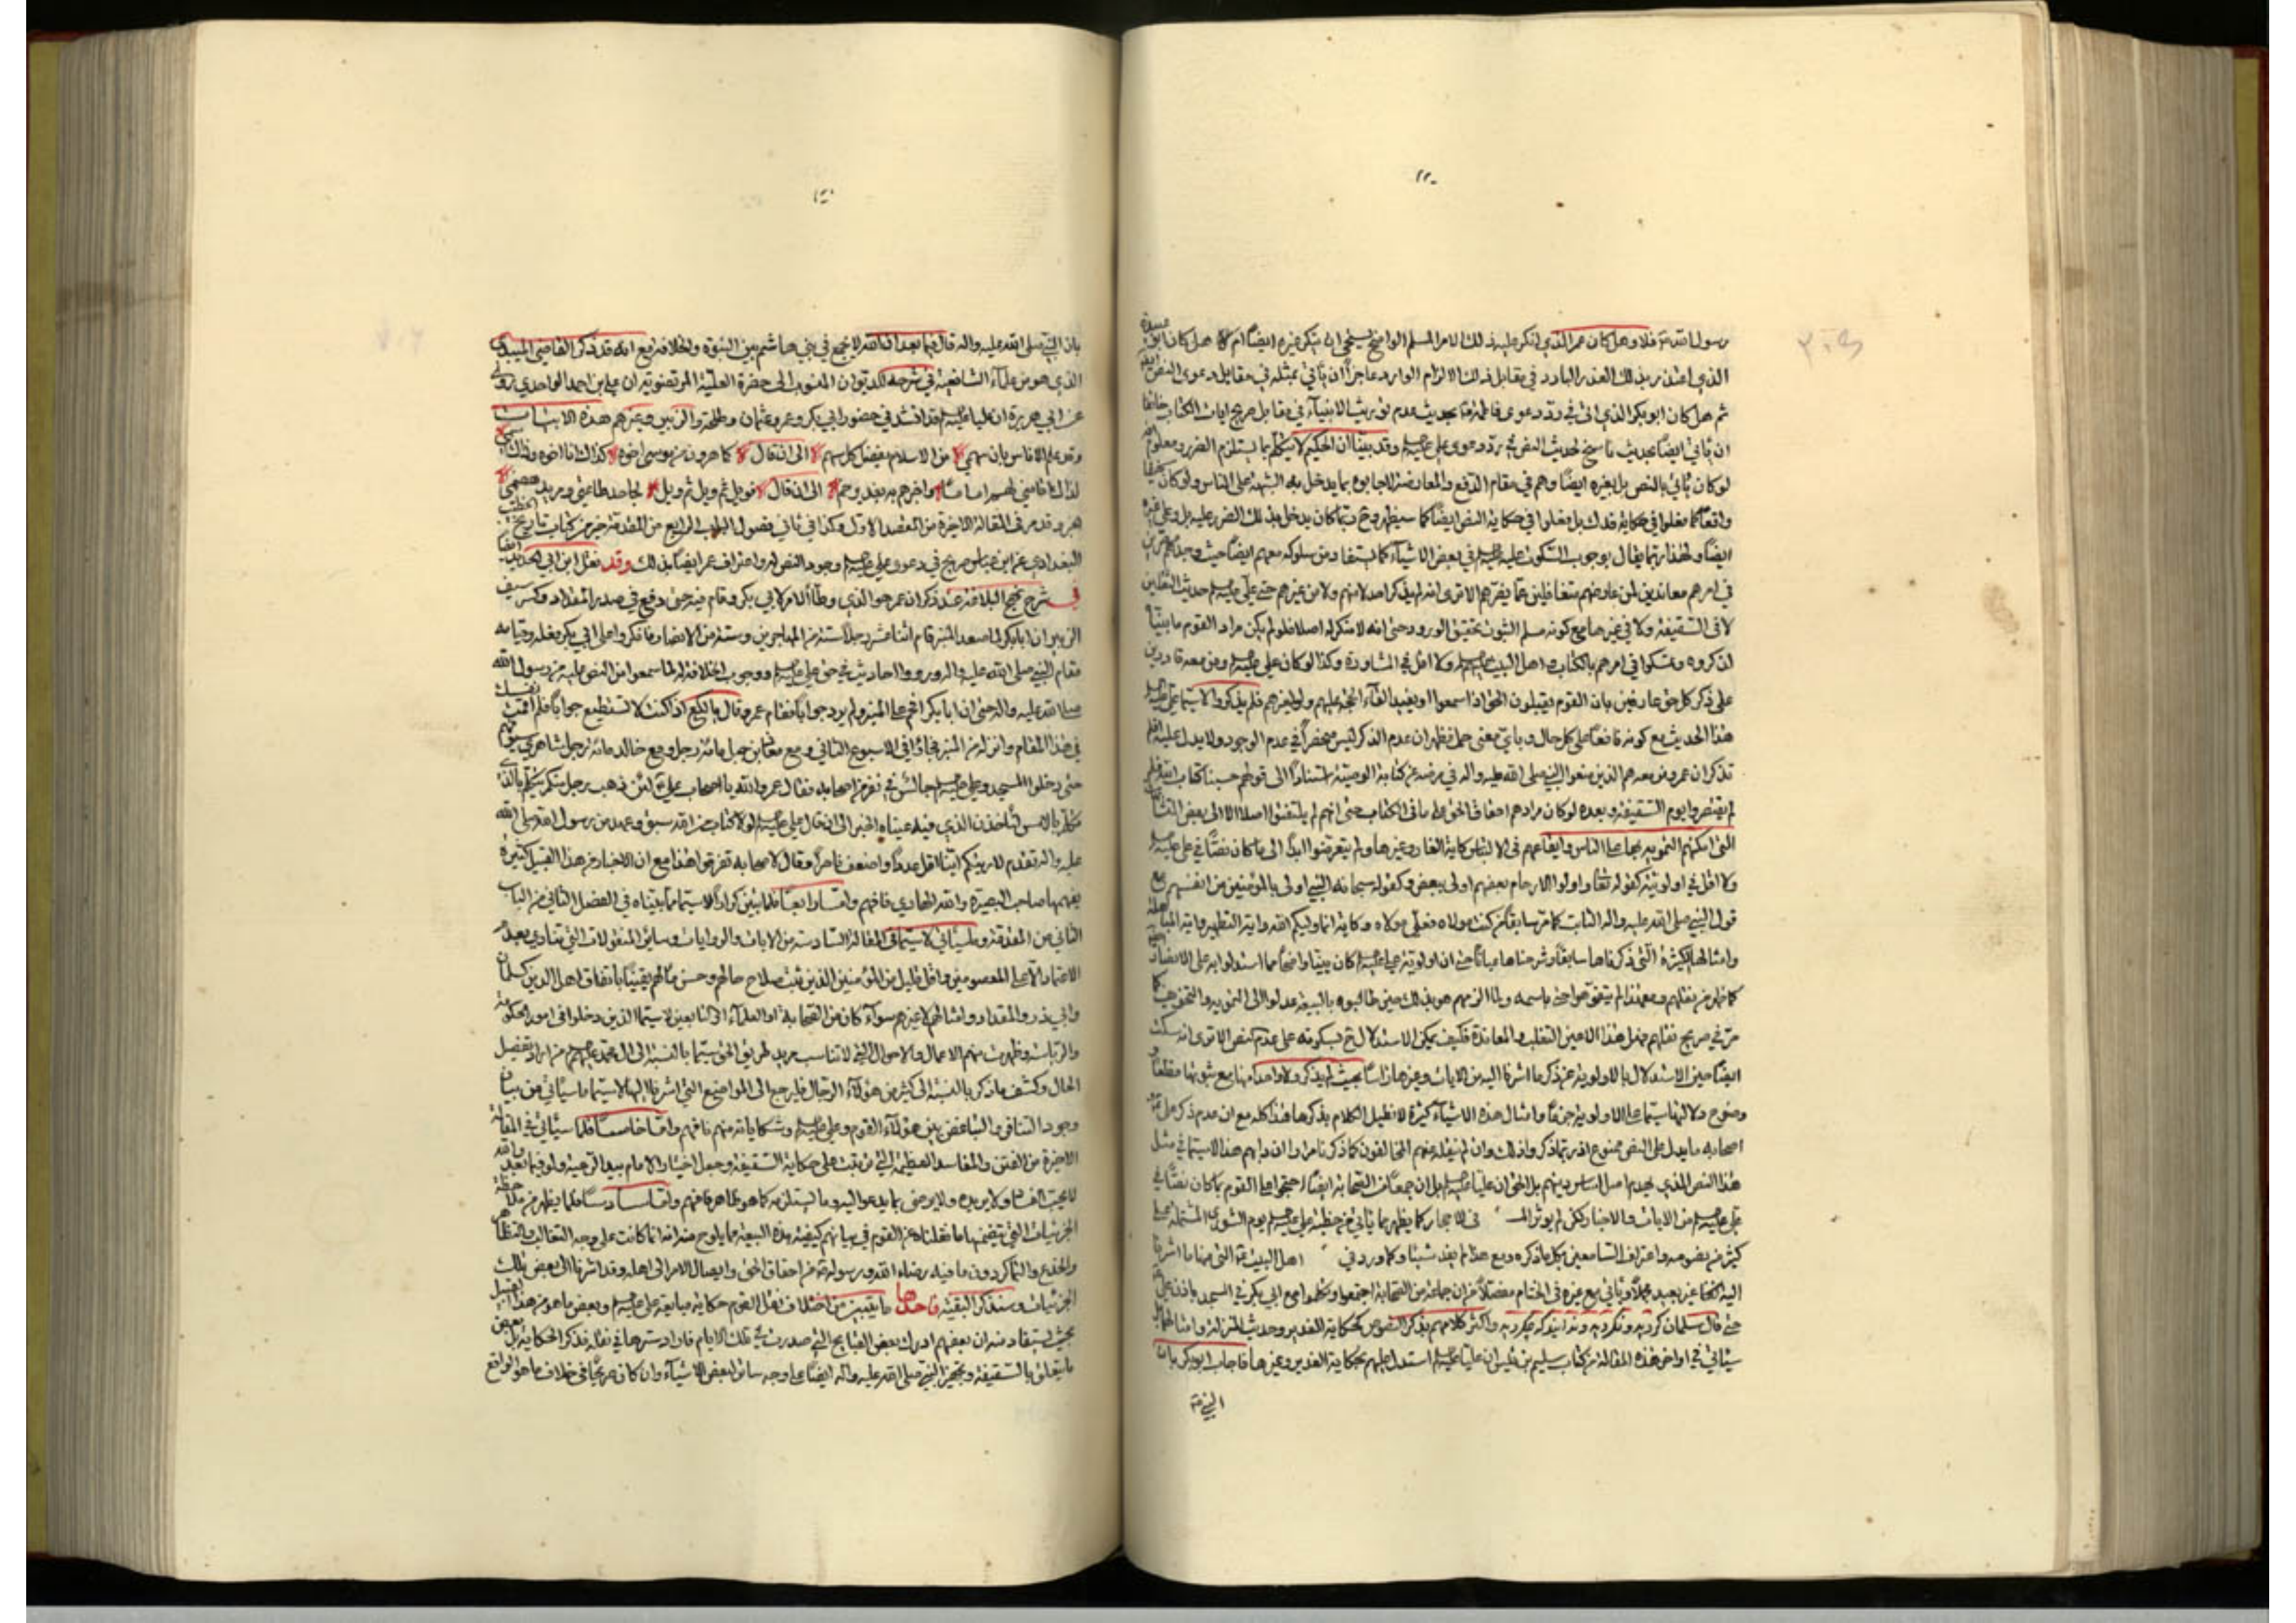 رسول الله ص فلا وهل كان عمر الذي انكر عليه ذلك الامر المسلم الواضح يستحي ان ينكر غيره ايضا ام لا هل كان ابو عبيدة
الذي اعتذر بذلك العذر البارد في مقابل ذلك الالزام الوارد عاجزا ان يأتي بمثله في مقابل دعوى النص
ثم هل كان ابو بكر الذي اتى في رد دعوى فاطمة بحديث عدم توريث الانبياء في مقابل صريح ايات الكتاب خائفا
ان يأتي ايضا بحديث ناسخ لحديث النص في رد دعوى علي وقد بينا ان الحكيم لا يتكلم بما يستلزم الضرر ومعلوم انه
لو كان يأتي بالنص بل بغيره ايضا وهم في مقام الدفع والمعارضة لاجابوه بما يدخل به الشبهة على الناس ولو كان
واقعا كما فعلوا في حكاية فدك بل فعلوا في حكاية النص ايضا كما سيظهر وح ربما كان يدخل بذلك الضرر عليه بل وعلى غيره
ايضا ولهذا ربما يقال بوجوب السكوت عليه في بعض الاشياء كما يستفاد من سلوكه معهم ايضا حيث وجدهم
في امرهم معاندين لمن عارضهم متغافلين عما يضرهم الا ترى انه لم يذكر احد لا منهم ولا من غيرهم حتى علي حديث الثقلين
لا في السقيفة ولا في غيرها مع كونه مسلم الثبوت محقق الورود حتى انه لا منكر له اصلا فلو لم يكن مراد القوم ما بينا
لذكروه وتمسكوا في امرهم بالكتاب واهل البيت ولا اقل في المشاورة وكذا لو كان علي ومن معه قادرين
على ذكر كل حق عارفين بان القوم يقبلون الحق اذا سمعوا او يفيد القاء الحجة عليهم ولو لغيرهم فلم يذكروا لا سيما علي
هذا الحديث مع كونه نافعا على كل حال وبأي معنى حمل فظهر ان عدم الذكر ليس منحصرا في عدم الوجود ولا يدل عليه
تذكر ان عمر ومن معه هم الذين منعوا النبي صلى الله عليه واله في مرضه عن كتابة الوصية استنادا الى قولهم حسبنا كتاب الله فلم
لم يقتصروا يوم السقيفة وبعده لو كان مرادهم احقاق الحق على ما في الكتاب حتى انهم لم يلتفتوا اصلا الا الى بعض
التي امكنهم التمويه بها على الناس وايقاعهم في الالتباس كاية الغار وغيرها ولم يتعرضوا ابدا الى ما كان نصا في علي
ولا اقل في اولويته كقوله تعالى واولوا الارحام بعضهم اولى ببعض وكقوله سبحانه النبي اولى بالمؤمنين من انفسهم مع
قول النبي صلى الله عليه واله الثابت كما مر سابقا من كنت مولاه فعلي مولاه وكاية انما وليكم الله واية التطهير واية المباهلة
وامثالها الكثيرة التي ذكرناها سابقا وشرحناها عيانا حتى ان اولويته كان بينا واضحا مما استدلوا به على الانصار
كما ظهر من نقلهم ومع هذا لم يتفوهوا حتى باسمه ولما الزمهم هو بذلك حين طالبوه بالبيعة عدلوا الى التمويه والتخويف كما
مر في صريح نقلهم فهل هذا الا عين التغلب والمعاندة فكيف يمكن الاستدلال ح بسكوته على عدم النص الا ترى انه سكت
ايضا حين الاستدلال بالاولوية عن ذكر ما اشرنا اليه من الايات وغيرها رأسا بحيث لم يذكر ولا واحدا منها مع ثبوتها مطلقا
وضوح دلالتها سيما على الاولوية جزما وامثال هذه الاشياء كثيرة لا نطيل الكلام بذكرها فهذا كله مع ان عدم ذكر علي
اصحابه ما يدل على النص ممنوع اذ ربما ذكروا ذلك وان لم ينقله عنهم المخالفون كما ذكرنا مرارا ان دابهم هذا لا سيما في مثل
هذا النص الذي يهدم اصل اساس دينهم بل الحق ان عليا بل ان جمعا من الصحابة ايضا احتجوا على القوم بما كان نصا في
علي من الايات والاخبار ولكن لم يؤثر في الاحجار كما يظهر مما يأتي من خطبة علي يوم الشورى المشتملة على
كثير من نصوصه واعتراف السامعين بكل ما ذكره ومع هذا لم يفد شيئا وكما ورد في اهل البيت التي منها ما اشرنا
اليه انفا غير بعيد مجملا ويأتي مع غيره في الختام مفصلا من ان جماعة من الصحابة اجتمعوا وتكلموا مع ابي بكر في المسجد باذن علي
حتى قال سلمان كرديد ونكرديد وندانيد كه چه كرديد واكثر كلامهم بذكر النصوص كحكاية الغدير وحديث المنزلة وامثالها
سيأتي في اواخر هذه المقالة من كتاب سليم بن قيس ان عليا استدل عليهم بحكاية الغدير وغيرها فاجاب ابو بكر بان
النبي ص
بان النبي صلى الله عليه واله قال فيما بعد ان الله لا يجمع في بني هاشم بين النبوة والخلافة مع انه قد ذكر القاضي الميبدي
الذي هو من علماء الشافعية في شرحه للديوان المنسوب الى حضرة العلية المرتضوية ان علي بن احمد الواحدي روى
عن ابي هريرة ان عليا قد انشد في حضور ابي بكر وعمر وعثمان وطلحة والزبير وغيرهم هذه الابيات
وقد علم الاناس بان سهمي من الاسلام يفضل كل سهم الى ان قال كما هرون من موسى اخوه كذاك انا اخوه وذاك اسمي
لذاك اقامني لهم اماما واخبرهم به بغدير خم الى ان قال فويل ثم ويل ثم ويل لجاحد طاعتي ومريد هضمي
وقد مر في المقالة الاخيرة من المقصد الاول وكذا في ثاني فصول الباب الرابع من المقدمة خبر من كتاب تاريخ الخطيب
البغدادي عن ابن عباس صريح في دعوى علي وجود النص له واعتراف عمر ايضا بذلك وقد نقل ابن ابي الحديد ايضا
في شرح نهج البلاغة عند ذكر ان عمر هو الذي وطأ الامر لابي بكر وقام فيه حتى دفع في صدر المقداد وكسر سيف
الزبير ان ابا بكر لما صعد المنبر قام اثنا عشر رجلا ستة من المهاجرين وستة من الانصار فانكروا على ابي بكر فعله وقيامه
مقام النبي صلى الله عليه واله ورووا احاديث في حق علي ووجوب الخلافة له لما سمعوا من النص عليه من رسول الله
صلى الله عليه واله حتى ان ابا بكر افحم على المنبر ولم يرد جوابا فقام عمر وقال يا لكع اذا كنت لا تستطيع جوابا فلم اقمت نفسك
في هذا المقام وانزله من المنبر فجاؤا في الاسبوع الثاني ومع معاذ بن جبل مائة رجل ومع خالد مائة رجل شاهري سيوفهم
حتى دخلوا المسجد وعلي جالس في نفر من اصحابه فقال عمر والله يا اصحاب علي لئن ذهب رجل منكم يتكلم بالذي
تكلم بالامس لنأخذن الذي فيه عيناه الخبر الى ان قال علي لولا كتاب من الله سبق وعهد من رسول الله صلى الله
عليه واله تقدم لاريتكم اينا اقل عددا واضعف ناصرا وقال لاصحابه تفرقوا هذا مع ان الاخبار من هذا القبيل كثيرة
يفهمها صاحب البصيرة والله الهادي فافهم واما رابعا فلما بين كرارا لا سيما ما بيناه في الفصل الثاني من الباب
الثاني من المقدمة وسيأتي لا سيما في المقالة السادسة من الايات والروايات وسائر المنقولات التي تنادي بعدم
الاعتماد الا على المعصومين واقل قليل من المؤمنين الذين ثبت صلاح حالهم وحسن مآلهم يقينا باتفاق اهل الدين كسلمان
وابي ذر والمقداد وامثالهم لا غيرهم سواء كان من الصحابة او العلماء او التابعين لا سيما الذين دخلوا في امور الحكومة
والرياسة وظهرت منهم الاعمال والاحوال التي لا تناسب مريد طريق الحق سيما بالنسبة الى ال محمد من اراد تفصيل
الحال وكشف ما ذكر بالنسبة الى كثير من هؤلاء الرجال فليرجع الى المواضع التي اشرنا اليها لا سيما ما سيأتي من بيان
وجود التنافي والتباغض بين هؤلاء القوم وعلي وشكاياته منهم فافهم واما خامسا فلما سيأتي في المقالة
الاخيرة من الفتن والمفاسد العظيمة التي ترتبت على حكاية السقيفة وجعل اختيار الامام بيد الرعية ولو فيما بعد والله
لا يحب الفساد ولا يريده ولا يرضى بما يدعو اليه وما يستلزمه كما هو ظاهر فافهم واما سادسا فلما يظهر من ملاحظة
الجزئيات التي يتضمنها ما نقلناه عن القوم في بيانهم كيفية هذه البيعة مما يلوح منه انه انما كانت على وجه التغالب والتظاهر
والخدع والتماكر دون ما فيه رضاء الله ورسوله ص من احقاق الحق وايصال الامر الى اهله وقد اشرنا الى بعض تلك
الجزئيات وسنذكر البقية فاحدها ما يتبين من اختلاف نقل القوم حكاية مبايعة علي وبعض ما هو من هذا القبيل
بحيث يستفاد منه ان بعضهم ادرك بعض القبايح التي صدرت في تلك الايام فاراد سترها في نقله فذكر الحكاية بل بعض
ما يتعلق بالسقيفة وتجهيز النبي صلى الله عليه واله ايضا على وجه ساتر لبعض الاشياء وان كان صريحا في خلاف ما هو الواقع